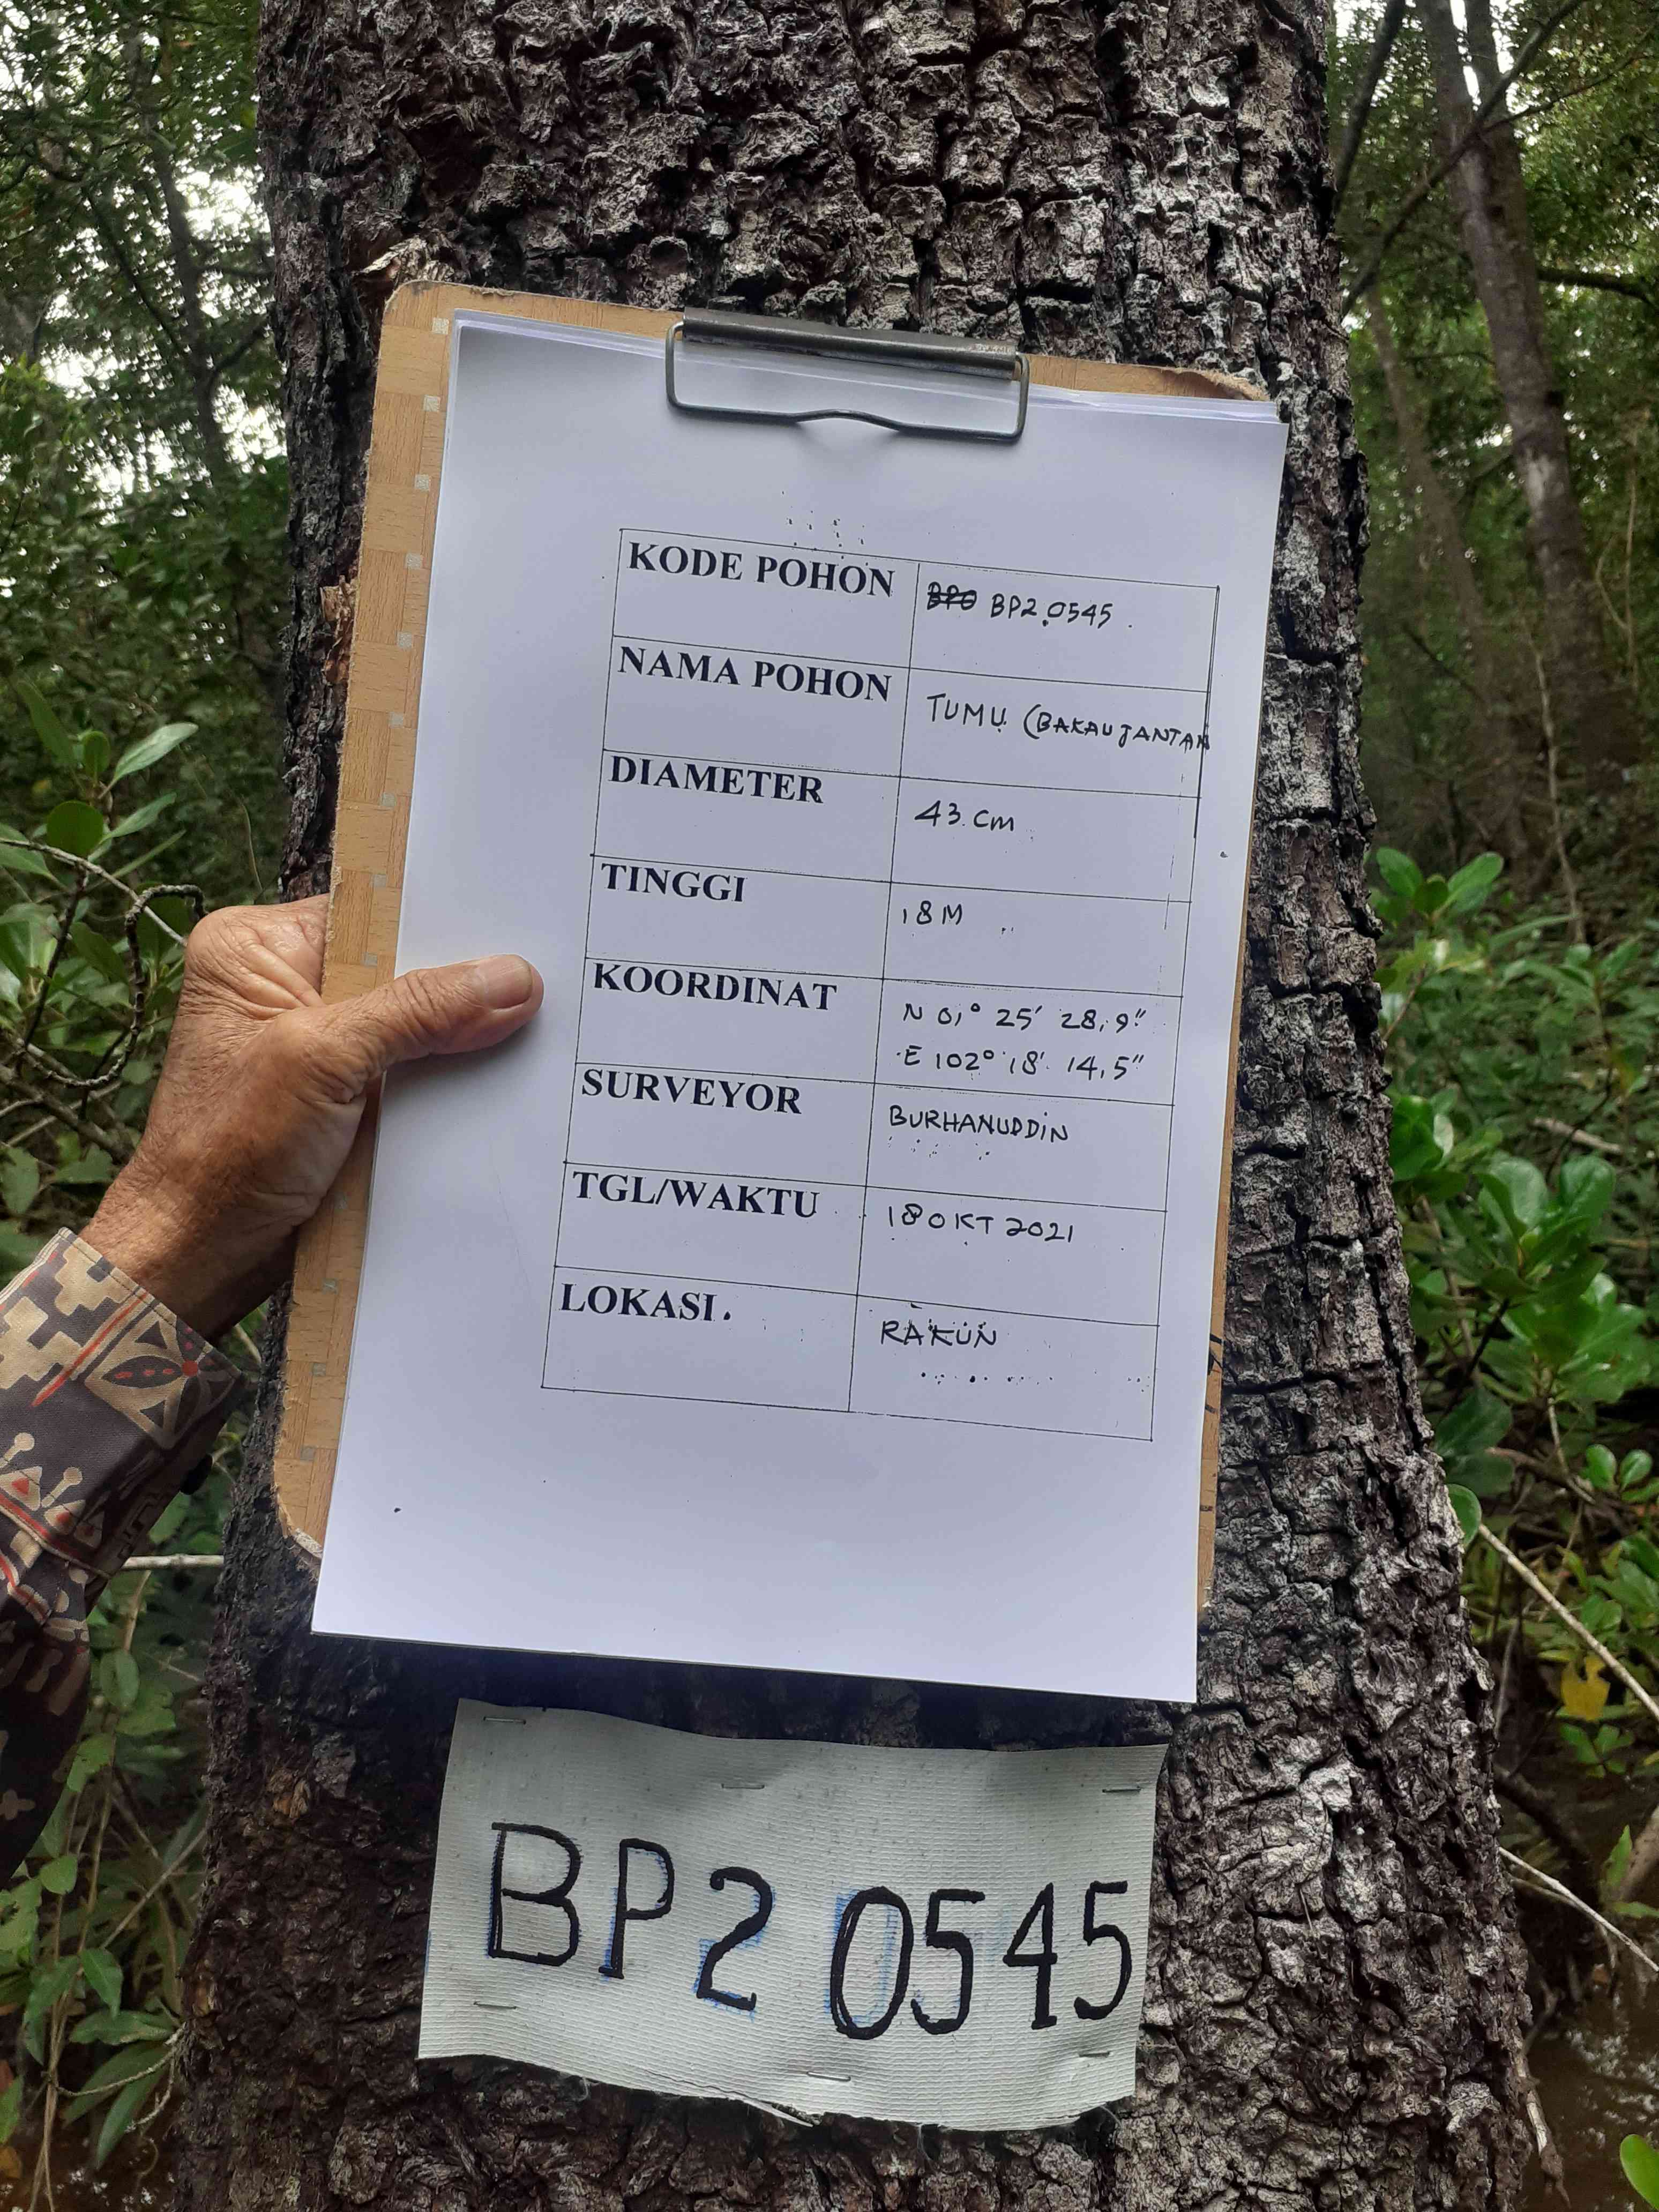 KODE POHON BP2.0545.
NAMA POHON TUMU (BAKAU JANTAN
DIAMETER 43 cm
TINGGI 18 M
KOORDINAT N 01° 25' 28,9"
E 102° 18' 14,5"
SURVEYOR BURHANUDDIN
TGL/WAKTU 18 OKT 2021
LOKASI. RAKUN
BP2 0545